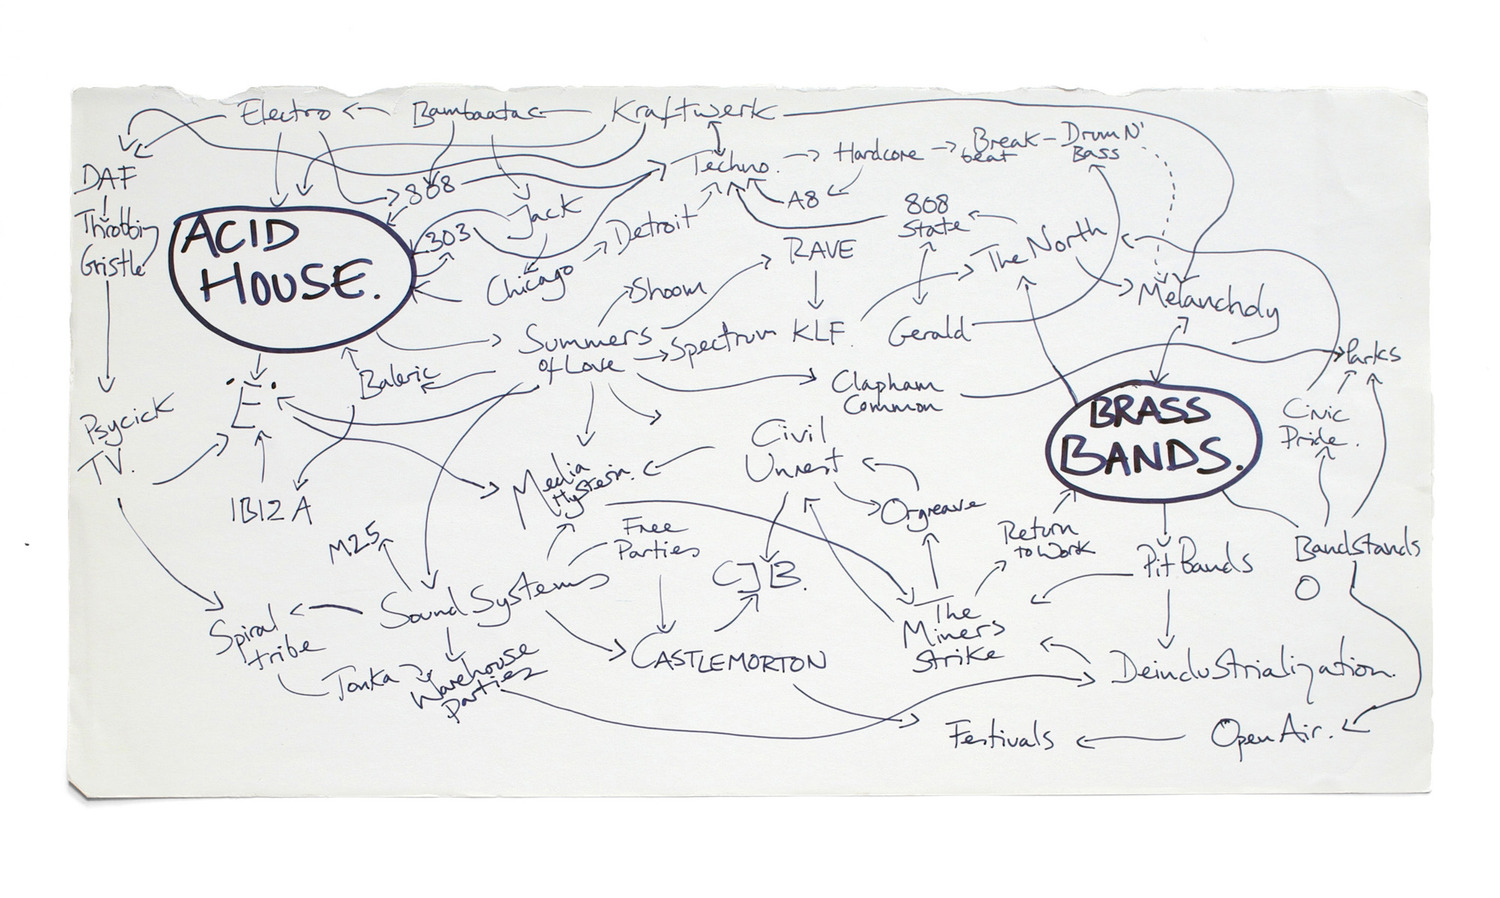 Electro
Bambaata
Kraftwerk
DAF
Throbbing
Gristle
808
Jack
Techno.
Hardcore
Break
beat
Drum N'
Bass
A8
808
State
ACID
HOUSE.
303
Chicago
Detroit
RAVE
The North
Melancholy
Shoom
Summers
of Love
Spectrum
KLF.
Gerald
Parks
Baleric
'E'.
Clapham
Common
BRASS
BANDS.
Civic
Pride.
Psycick
TV.
IBIZA
Media
Hysteria.
Civil
Unrest
Orgreave
M25
Free
Parties
CJB.
Return
to Work
Pit Bands
Bandstands
O
Sound Systems
Spiral
tribe
Tonka
Warehouse
Parties
CASTLEMORTON
The
Miners
Strike
Deindustrialization.
Festivals
Open Air.